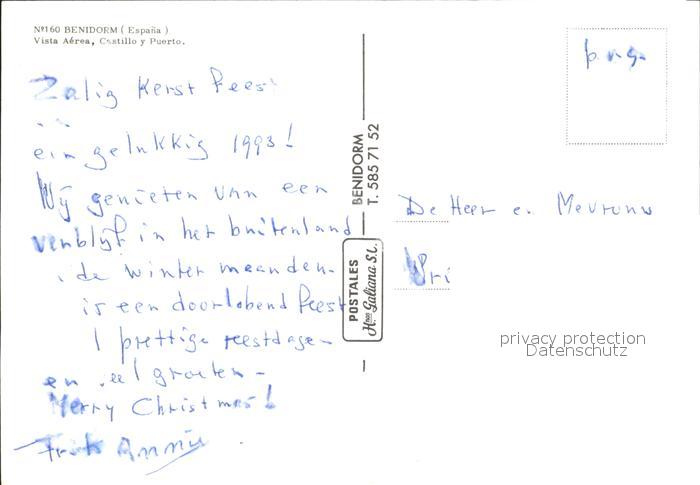 Nº160 BENIDORM ( España )
Vista Aérea, Castillo y Puerto.
Zalig Kerst Fees
een gelukkig 1993!
Wij genieten van een
verblijf in het buitenland
de winter maanden.
is een doorlopend feest
prettige feestdage
en veel groeten
Merry Christmas!
Frits Annie
BENIDORM
T. 585 71 52
POSTALES
Hnos Galiana S.L.
De Heer e. Mevrouw
privacy protection
Datenschutz